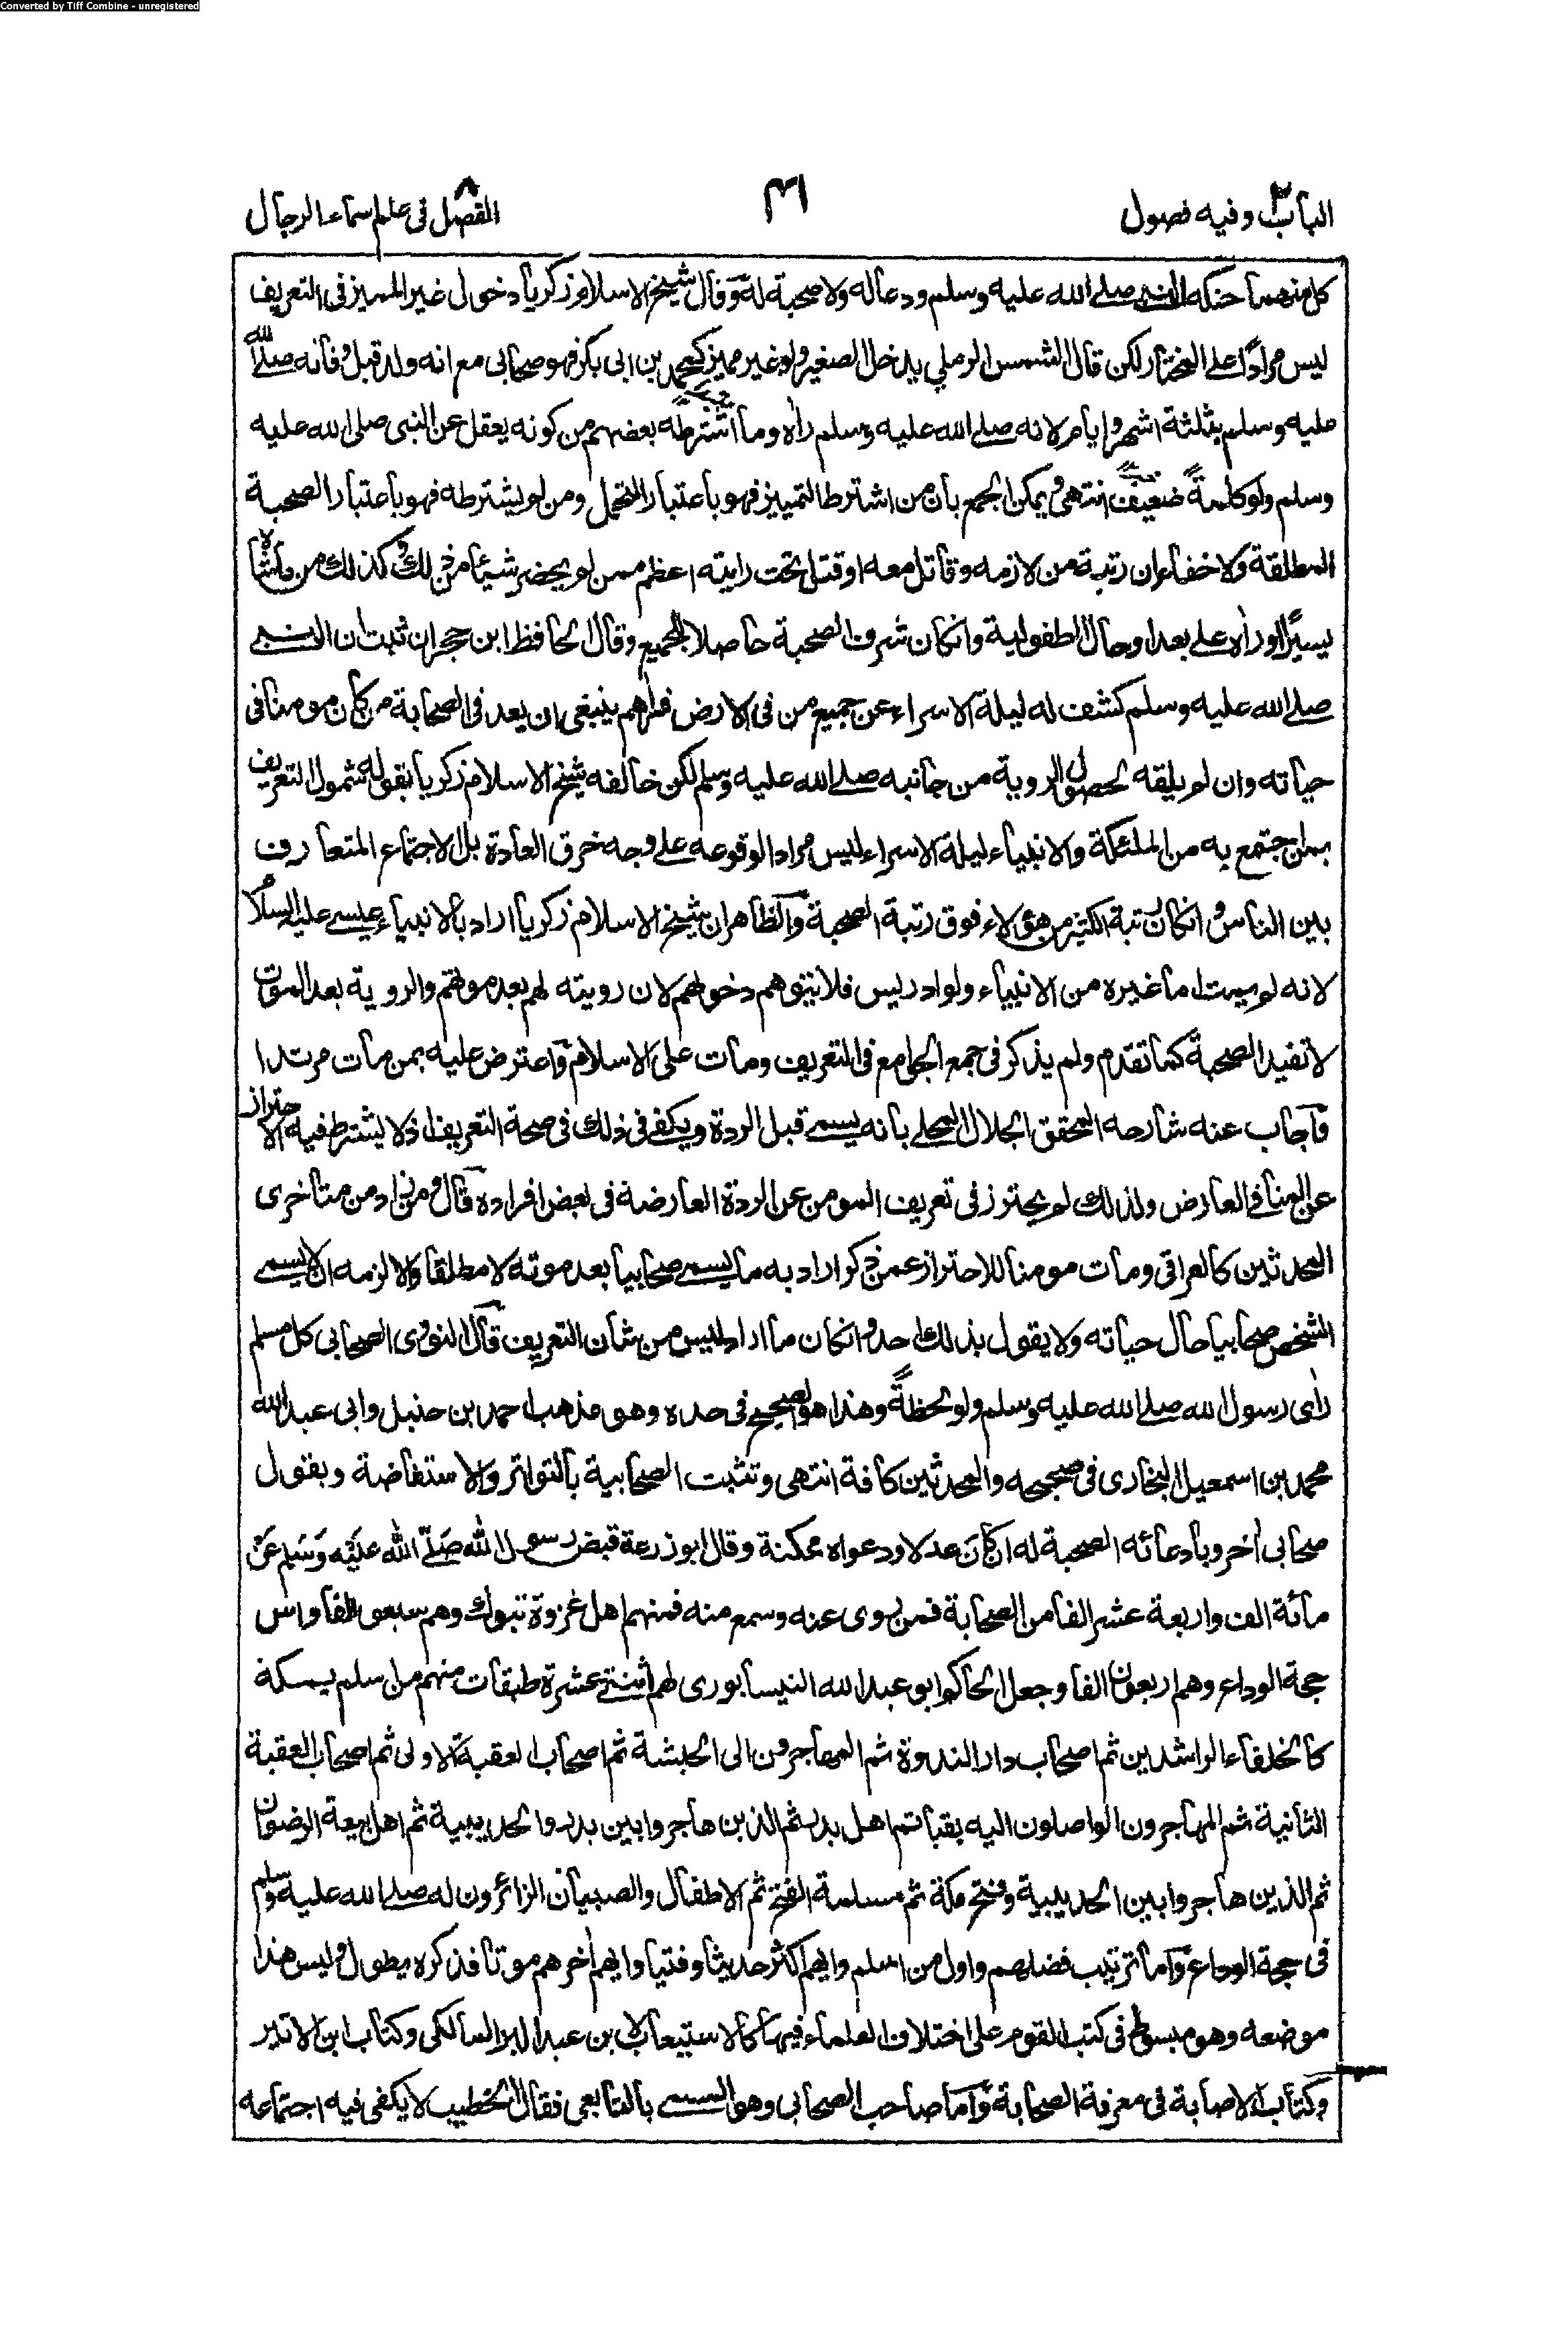 Converted by Tiff Combine - unregistered
الباب ٢ وفيه فصول
٣١
الفصل ٨ فى علم اسماء الرجال
كل منهما حنكه النبى صلے الله عليه وسلم ودعا له ولا صحبة له وقال شيخ الاسلام زكريا دخول غير المميز فى التعريف
ليس مرادا على المختار لكن قال الشمس الرملي يدخل الصغير ولو غير مميز كمحمد بن ابى بكر فهو صحابى مع انه ولد قبل وفاته صلے الله
عليه وسلم بثلثة اشهر وايام لانه صلے الله عليه وسلم راٰه وما اشترطه بعضهم من كونه يعقل عن النبى صلى الله عليه
وسلم ولو كلمةً ضعيف انتهى ويمكن الجمع بان من اشترط التمييز فهو باعتبار التحمل ومن لم يشترطه فهو باعتبار الصحبة
المطلقة ولا خفاء ان رتبة من لازمه وقاتل معه او قتل تحت رايته اعظم ممن لم يحضر شيئا من ذلك وكذلك من ماشاه
يسيرًا او راٰه على بعد او حال الطفولية وانكان شرف الصحبة حاصلا للجميع وقال الحافظ ابن حجر ان ثبت ان النبى
صلے الله عليه وسلم كشف له ليلة الاسراء عن جميع من فى الارض فراٰهم ينبغى ان يعد فى الصحابة من كان مومنا فى
حياته وان لم يلقه لحصول الروية من جانبه صلے الله عليه وسلم لكن خالفه شيخ الاسلام زكريا بقوله شمول التعريف
بمن اجتمع به من الملئكة والانبياء ليلة الاسراء ليس مرادا لوقوعه على وجه خرق العادة بل الاجتماع المتعارف
بين الناس وانكان رتبة الكثير من هؤلاء فوق رتبة الصحبة والظاهر ان شيخ الاسلام زكريا اراد بالانبياء عيسے عليه السلام
لانه لم يمت اما غيره من الانبياء ولو ادريس فلا يتوهم دخولهم لان رويته لهم بعد موتهم والروية بعد الموت
لا تفيد الصحبة كما تقدم ولم يذكر فى جمع الجوامع فى التعريف ومات على الاسلام واعترض عليه بمن مات مرتدا
واجاب عنه شارحه المحقق الجلال المحلے بانه يسمے قبل الردة ويكفے فى ذلك فى صحة التعريف اذ لا يشترط فيه الاحتراز
عن المنافى العارض ولذلك لم يحترز فى تعريف المومن عن الردة العارضة فى بعض افراده قال ومن زاد من متاخرى
المحدثين كالعراقى ومات مومنا للاحتراز عمن ذكر اراد به ما يسمے صحابيا بعد موته لا مطلقا والا لزمه ان لا يسمے
الشخص صحابيا حال حياته ولا يقول بذلك احد وانكان ما اراده ليس من شان التعريف قال النووى الصحابى كل مسلم
راٰى رسول الله صلے الله عليه وسلم ولو لحظةً وهذا هو الصحيح فى حده وهو مذهب احمد بن حنبل وابى عبد الله
محمد بن اسمعيل البخارى فى صحيحه والمحدثين كافة انتهى وتثبت الصحابية بالتواتر والاستفاضة وبقول
صحابى اٰخر وبادعائه الصحبة له ان كان عدلا ودعواه ممكنة وقال ابو زرعة قبض رسول الله صلّے الله عليه وسلم عن
مائة الف واربعة عشر الفا من الصحابة فمن روى عنه وسمع منه فمنهم اهل غزوة تبوك وهم سبعون الفا واهل
حجة الوداع وهم اربعون الفا وجعل الحاكم ابو عبد الله النيسابورى لهم اثنتے عشرة طبقات منهم من اسلم بمكة
كالخلفاء الراشدين ثم اصحاب دار الندوة ثم المهاجرون الى الحبشة ثم اصحاب العقبة الاولى ثم اصحاب العقبة
الثانية ثم المهاجرون الواصلون اليه بقبا ثم اهل بدر ثم الذين هاجروا بين بدر والحديبية ثم اهل بيعة الرضوان
ثم الذين هاجروا بين الحديبية وفتح مكة ثم مسلمة الفتح ثم الاطفال والصبيان الزائرون له صلے الله عليه وسلم
فى حجة الوداع واما ترتيب فضلهم واول من اسلم وايهم اكثر حديثا وفتيا وايهم اٰخرهم موتا فذكره يطول وليس هذا
موضعه وهو مبسوط فى كتب القوم على اختلاف العلماء فيها كالاستيعاب لابن عبد البر المالكى وكتاب ابن الاثير
وكتاب الاصابة فى معرفة الصحابة واما صاحب الصحابى وهو المسمے بالتابعى فقال الخطيب لا يكفى فيه اجتماعه